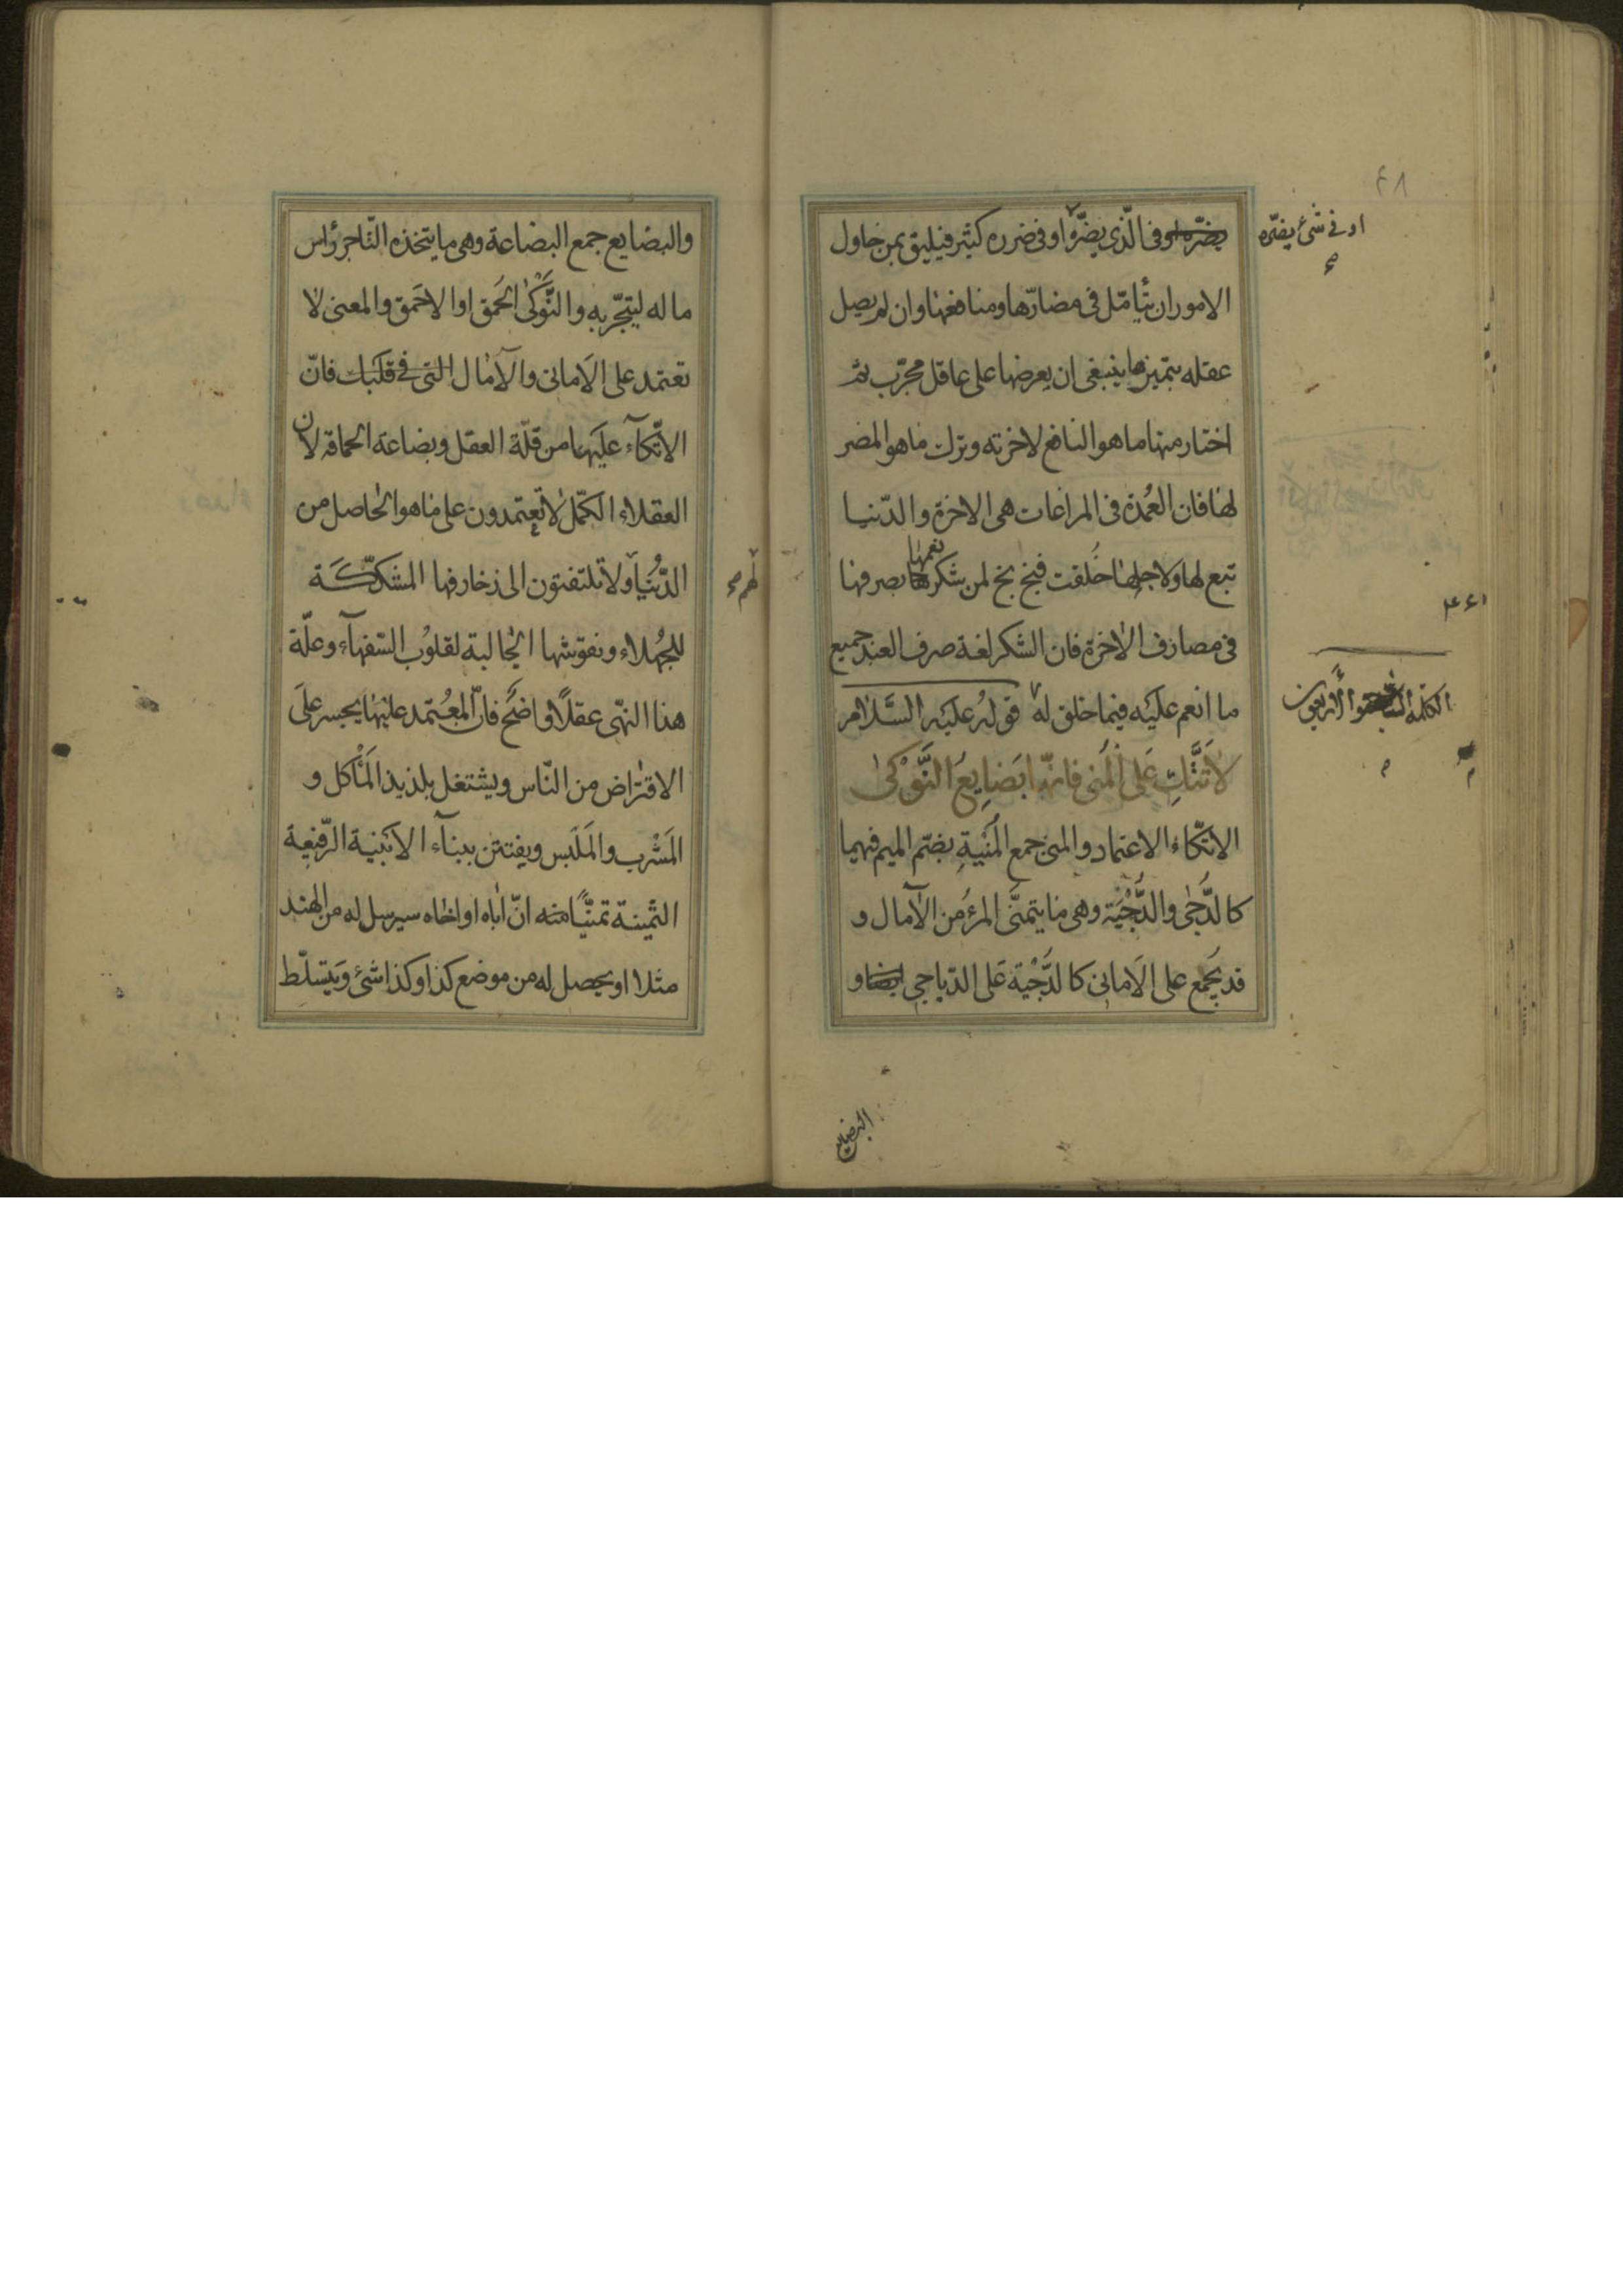 ٤٨
يضرّه او فى الّذى يضرّه او فى ضرره كثير فيليق بمن حاول
او فى شئ يضرّه
الامور ان يتأمّل فى مضارّها ومنافعها وان لم يصل
عقله بتميزها ينبغى ان يعرضها على عاقل مجرّب ثم
اختار منها ما هو النافع لاخرته وترك ما هو المضر
لها فان العُمدة فى المراعات هى الاخرة والدّنيا
تبع لها ولاجلها خُلقت فبخ بخ لمن شكر نعمها بصرفها
فى مصارف الاخرة فان الشكر لغة صرف العبد جميع
ما انعم عليه فيما خلق له قوله عليه السّلام
الكلمة والاربعون
لا تتّكِ على المُنى فانّها بَضايعُ النَّوْكى
الاتكّاء الاعتماد والمنى جمع المُنْيةِ بضمّ الميم فيهما
كالدُّجى والدُّجْيَة وهى ما يتمنّى المرءُ من الآمال و
قد يَجمع على الاَمانى كالدُّجْية على الدّياجى ايضا و
البضايع
والبضايع جمع البضاعة وهى ما يتخذه التّاجر رؤاس
ماله ليتجّر به والنَّوْكىٰ الحَمق اوالاحَمق والمعنى لا
تعتمد على الاَمانى والآمال التى فى قلبك فانّ
الاتّكآء عليها من قلّة العقل وبضاعة الحماقة لان
العقلاء الكمّل لا يعتمدون على ما هو الحاصل من
الدُّنيا ولا تلتفتون الى زخارفها
لهم صح
للجُهلاء ونقوشها الجالبة لقلوُب السّفهآء وعلّة
هذا النهّى عقلًا واضحٌ فانّ المعُتمد عليها يجسر على
الاقتراض من النّاس ويشتغل بلذيذ المَأكل و
المَشْرب والمَلَبس ويفتتن ببنآء الابَنية الرّفيعة
الثّمينة تمنيًّا منه انّ اباه او اخاه سيرسل له من الهند
مثلا او يحصل له من موضع كذا وكذا شئ ويَتسلّط